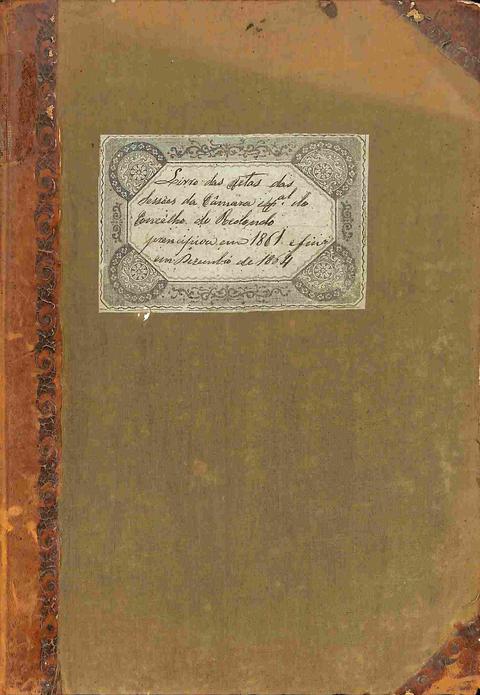 Livro das Actas das
Sessões da Câmara M.pal do
Concelho do Redondo
principiou em 1861 e finda
em Dezembro de 1864